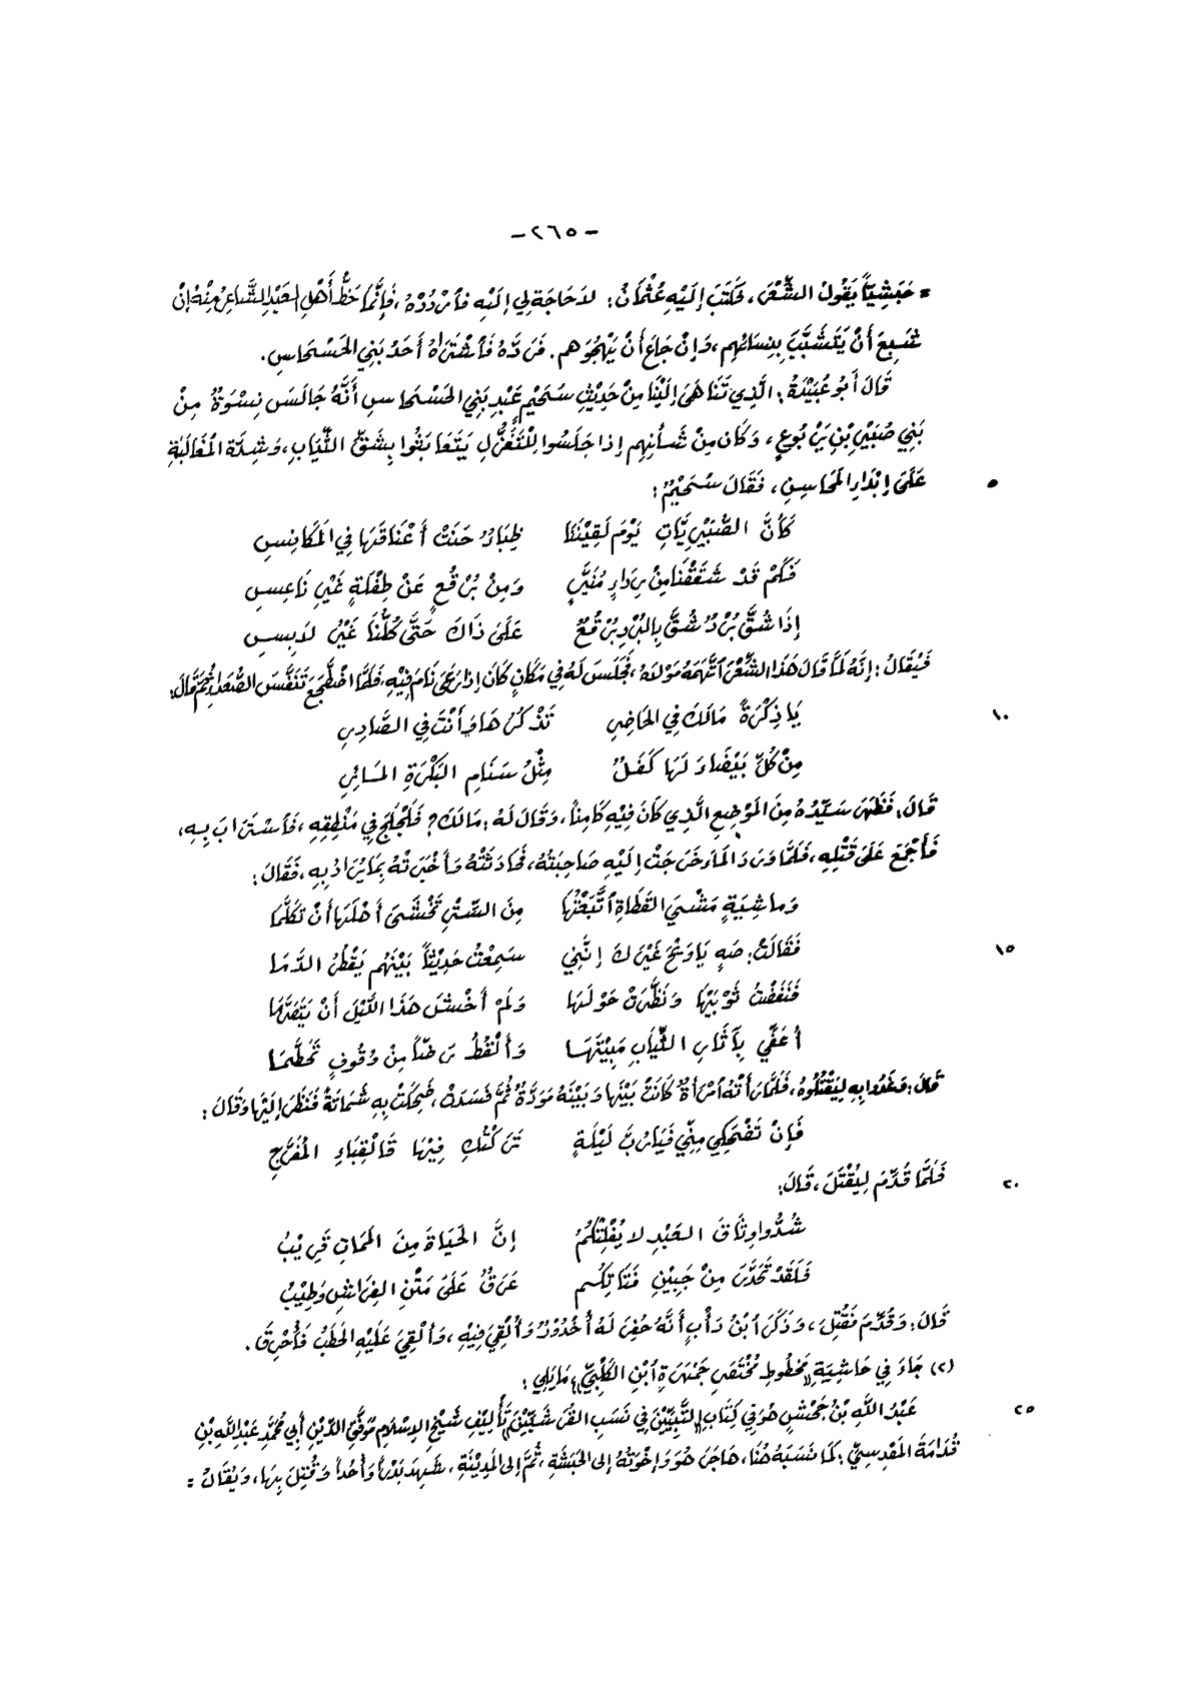 - ٢٦٥ -
= حَبَشِيّاً يَقُولُ الشِّعْرَ، فَكَتَبَ إِلَيْهِ عُثْمَانُ: لاَحَاجَةَ لِي إِلَيْهِ فَٱرْدُدْهُ، فَإِنَّمَا حَظُّ أَهْلِ العَبْدِ الشَّاعِرِ مِنْهُ إِنْ
شَبِعَ أَنْ يَتَشَبَّبَ بِنِسَائِهِم، وَإِنْ جَاعَ أَنْ يَهْجُوَهم. فَرَدَّهُ فَٱشْتَرَاهُ أَحَدُ بَنِي الحَسْحَاسِ.
قَالَ أَبُو عُبَيْدَةَ: الَّذِي تَنَاهَىٰ إِلَيْنَا مِنْ حَدِيْثِ سُحَيْمٍ عَبْدِ بَنِي الحَسْحَاسِ أَنَّهُ جَالَسَ نِسْوَةً مِنْ
بَنِي صُبَيْرِ بْنِ يَرْبُوعٍ، وَكَانَ مِنْ شَأْنِهِم إِذا جَلَسُوا لِلْتَّغَزُّلِ يَتَعَابَثُوا بِشَقِّ الثِّيَابِ، وَشِدَّةِ المُغَالَبَةِ
عَلَىٰ إِبْدَاءِ المَحَاسِنِ، فَقَالَ سُحَيْمٌ: ٥
كَأَنَّ الصُّبَيْرِيَّاتِ يَوْمَ لَقِيْنَنَا ظِبَاءٌ حَنَتْ أَعْنَاقَهَا فِي المَكَانِسِ
فَكَمْ قَدْ شَقَقْنَا مِنْ رِدَاءٍ مُنَيَّرٍ وَمِنْ بُرْقُعٍ عَنْ طِفْلَةٍ غَيْرِ نَاعِسِ
إِذَا شُقَّ بُرْدٌ شُقَّ بِالبُرْدِ بُرْقُعٌ عَلَىٰ ذَاكَ حَتَّىٰ كُلُّنَا غَيْرُ لاَبِسِ
فَيُقَالُ: إِنَّهُ لَمَّا قَالَ هَذَا الشِّعْرَ ٱتَّهَمَهُ مَوْلاَهُ، فَجَلَسَ لَهُ فِي مَكَانٍ كَانَ إِذا رَعَىٰ نَامَ فِيْهِ، فَلَمَّا اضْطَجَعَ تَنَفَّسَ الصُّعَدَاءَ ثُمَّ قَالَ:
يَا ذِكْرَةً مَالَكَ فِي الحَاضِرِ تَذْكُرُهَا وَأَنْتَ فِي الصَّادِرِ ١٠
مِنْ كُلِّ بَيْضَاءَ لَهَا كَفَلٌ مِثْلُ سَنَامِ البَكْرَةِ المَائِرِ
قَالَ: فَظَهَرَ سَيِّدُهُ مِنَ المَوْضِعِ الَّذِي كَانَ فِيْهِ كَامِناً، وَقَالَ لَهُ: مَالَكَ؟ فَلَجْلَجَ فِي مَنْطِقِهِ، فَٱسْتَرَابَ بِهِ،
فَأَجْمَعَ عَلَىٰ قَتْلِهِ، فَلَمَّا وَرَدَ المَاءَ خَرَجَتْ إِلَيْهِ صَاحِبَتُهُ، فَحَادَثَتْهُ وَأَخْبَرَتْهُ بِمَا يُرَادُ بِهِ، فَقَالَ:
وَمَاشِيَةٍ مَشْيَ القَطَاةِ ٱتَّبَعْتُهَا مِنَ السِّتْرِ تَخْشَىٰ أَهْلَهَا أَنْ تَكَلَّمَا
فَقَالَتْ: صَهٍ يَا وَيْحَ غَيْرِكَ إِنَّنِي سَمِعْتُ حَدِيْثاً بَيْنَهُم يَقْطُرُ الدَّمَا ١٥
فَنَفَضْتُ ثَوْبَيْهَا وَنَظَّرْتُ حَوْلَهَا وَلَمْ أَخْشَ هَذَا اللَّيْلَ أَنْ يَتَصَرَّمَا
أُعَفِّي بِآثَارِ الثِّيَابِ مَبِيْتَهَا وَأَلْقُطُ رَضّاً مِنْ وُقُوفٍ تَحَطَّمَا
قَالَ: وَغَدَوا بِهِ لِيَقْتُلُوهُ، فَلَمَّا رَأَتْهُ ٱمْرَأَةٌ كَانَتْ بَيْنَهَا وَبَيْنَهُ مَوَدَّةٌ ثُمَّ فَسَدَتْ، ضَحِكَتْ بِهِ شَمَاتَةً فَنَظَرَ إِلَيْهَا وَقَالَ:
فَإِنْ تَضْحَكِي مِنِّي فَيَارُبَّ لَيْلَةٍ تَرَكْتُكِ فِيْهَا كَالقِبَاءِ المُفَرَّجِ
فَلَمَّا قُدِّمَ لِيُقْتَلَ، قَالَ: ٢٠
شُدُّوا وِثَاقَ العَبْدِ لا يُفْلِتْكُمُ إِنَّ الحَيَاةَ مِنَ المَمَاتِ قَرِيْبُ
فَلَقَدْ تَحَدَّرَ مِنْ جَبِيْنِ فَتَاتِكُم عَرَقٌ عَلَىٰ مَتْنِ الفِرَاشِ وَطِيْبُ
قَالَ: وَقُدِّمَ فَقُتِلَ، وَذَكَرَ ٱبْنُ دَأْبٍ أَنَّهُ حُفِرَ لَهُ أُخْدُوْدٌ وَأُلْقِيَ فِيْهِ، وَأُلْقِيَ عَلَيْهِ الحَطَبُ فَأُحْرِقَ.
(٢) جَاءَ فِي حَاشِيَةِ «مَخْطُوطِ مُخْتَصَرِ جَمْهَرَةِ ٱبْنِ الكَلْبِيِّ» مَا يَلِي:
عَبْدُ اللَّهِ بْنُ جَحْشٍ هُوَ فِي كِتَابِ «التَّبْيِيْنِ فِي نَسَبِ القُرَشِيِّيْنَ» تَأْلِيْفِ شَيْخِ الإِسْلاَمِ مُوَفَّقِ الدِّيْنِ أَبِي مُحَمَّدٍ عَبْدِ اللَّهِ بْنِ ٢٥
قُدَامَةَ المَقْدِسِيِّ: كَمَا نَسَبَهُ هُنَا، هَاجَرَ هُوَ وَإِخْوَتُهُ إِلى الحَبَشَةِ، ثُمَّ إِلى المَدِيْنَةِ، شَهِدَ بَدْراً وَأُحُداً وَقُتِلَ بِهَا، وَيُقَالُ =